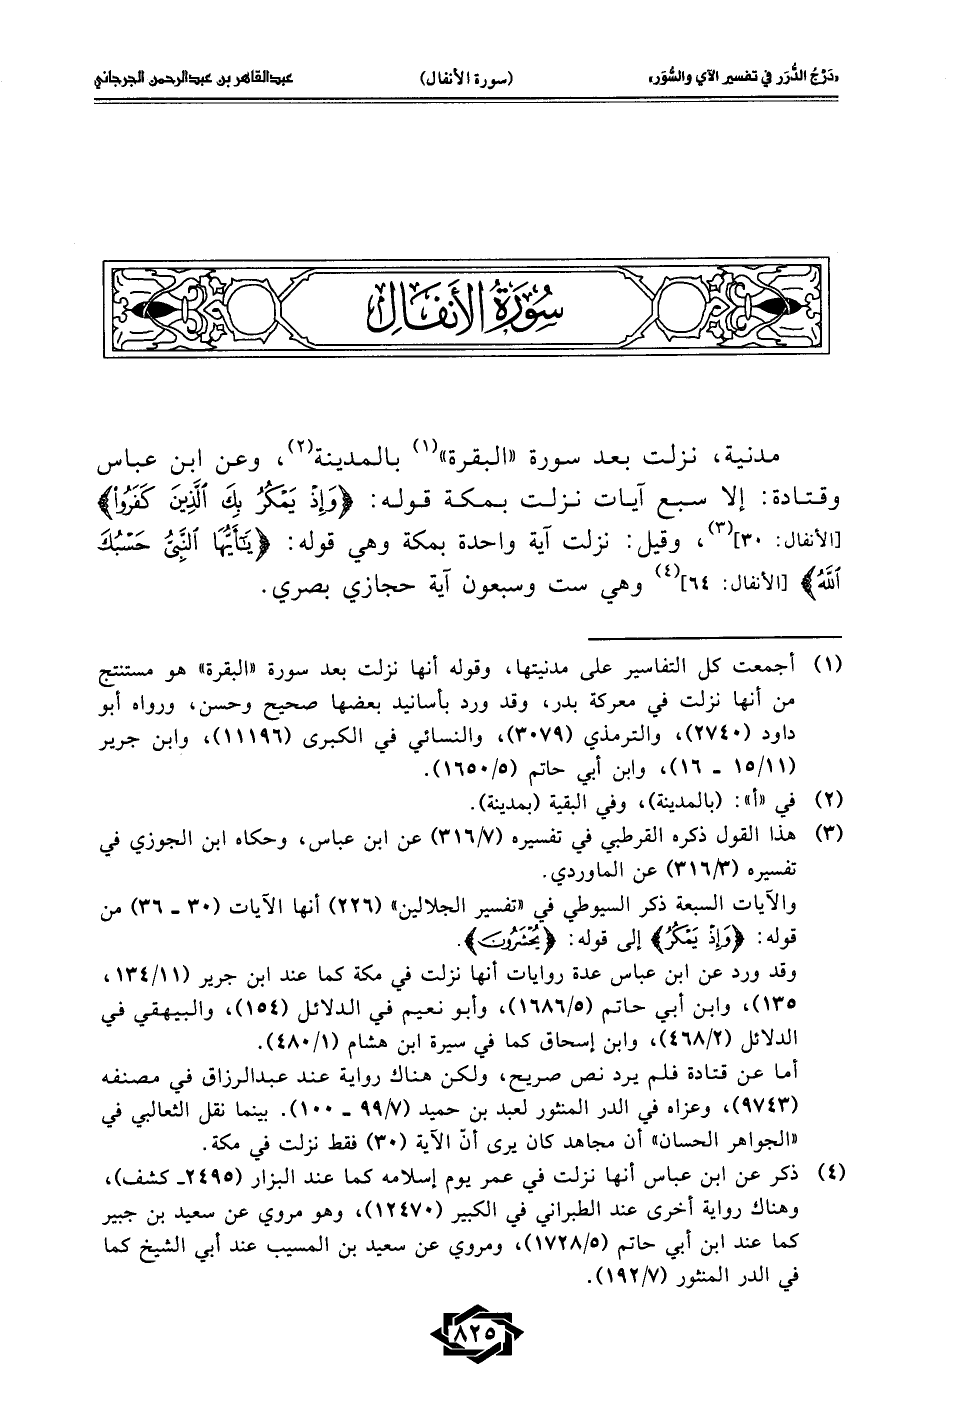 «دَرْجُ الدُّرَر في تفسير الآي والسُّوَر» (سورة الأنفال) عبدالقاهر بن عبدالرحمن الجرجاني
سُورَةُ الأَنفَال
مدنية، نزلت بعد سورة «البقرة»(١) بالمدينة(٢)، وعن ابن عباس
وقتادة: إلا سبع آيات نزلت بمكة قوله: ﴿وَإِذْ يَمْكُرُ بِكَ ٱلَّذِينَ كَفَرُوا۟﴾
[الأنفال: ٣٠](٣)، وقيل: نزلت آية واحدة بمكة وهي قوله: ﴿يَٰٓأَيُّهَا ٱلنَّبِىُّ حَسْبُكَ
ٱللَّهُ﴾ [الأنفال: ٦٤](٤) وهي ست وسبعون آية حجازي بصري.
(١) أجمعت كل التفاسير على مدنيتها، وقوله أنها نزلت بعد سورة «البقرة» هو مستنتج
من أنها نزلت في معركة بدر، وقد ورد بأسانيد بعضها صحيح وحسن، ورواه أبو
داود (٢٧٤٠)، والترمذي (٣٠٧٩)، والنسائي في الكبرى (١١١٩٦)، وابن جرير
(١١/١٥ - ١٦)، وابن أبي حاتم (٥/١٦٥٠).
(٢) في «أ»: (بالمدينة)، وفي البقية (بمدينة).
(٣) هذا القول ذكره القرطبي في تفسيره (٧/٣١٦) عن ابن عباس، وحكاه ابن الجوزي في
تفسيره (٣/٣١٦) عن الماوردي.
والآيات السبعة ذكر السيوطي في «تفسير الجلالين» (٢٢٦) أنها الآيات (٣٠ - ٣٦) من
قوله: ﴿وَإِذْ يَمْكُرُ﴾ إلى قوله: ﴿يُحْشَرُونَ﴾.
وقد ورد عن ابن عباس عدة روايات أنها نزلت في مكة كما عند ابن جرير (١١/١٣٤،
١٣٥)، وابن أبي حاتم (٥/١٦٨٦)، وأبو نعيم في الدلائل (١٥٤)، والبيهقي في
الدلائل (٢/٤٦٨)، وابن إسحاق كما في سيرة ابن هشام (١/٤٨٠).
أما عن قتادة فلم يرد نص صريح، ولكن هناك رواية عند عبدالرزاق في مصنفه
(٩٧٤٣)، وعزاه في الدر المنثور لعبد بن حميد (٧/٩٩ - ١٠٠). بينما نقل الثعالبي في
«الجواهر الحسان» أن مجاهد كان يرى أنّ الآية (٣٠) فقط نزلت في مكة.
(٤) ذكر عن ابن عباس أنها نزلت في عمر يوم إسلامه كما عند البزار (٢٤٩٥- كشف)،
وهناك رواية أخرى عند الطبراني في الكبير (١٢٤٧٠)، وهو مروي عن سعيد بن جبير
كما عند ابن أبي حاتم (٥/١٧٢٨)، ومروي عن سعيد بن المسيب عند أبي الشيخ كما
في الدر المنثور (٧/١٩٢).
٨٢٥